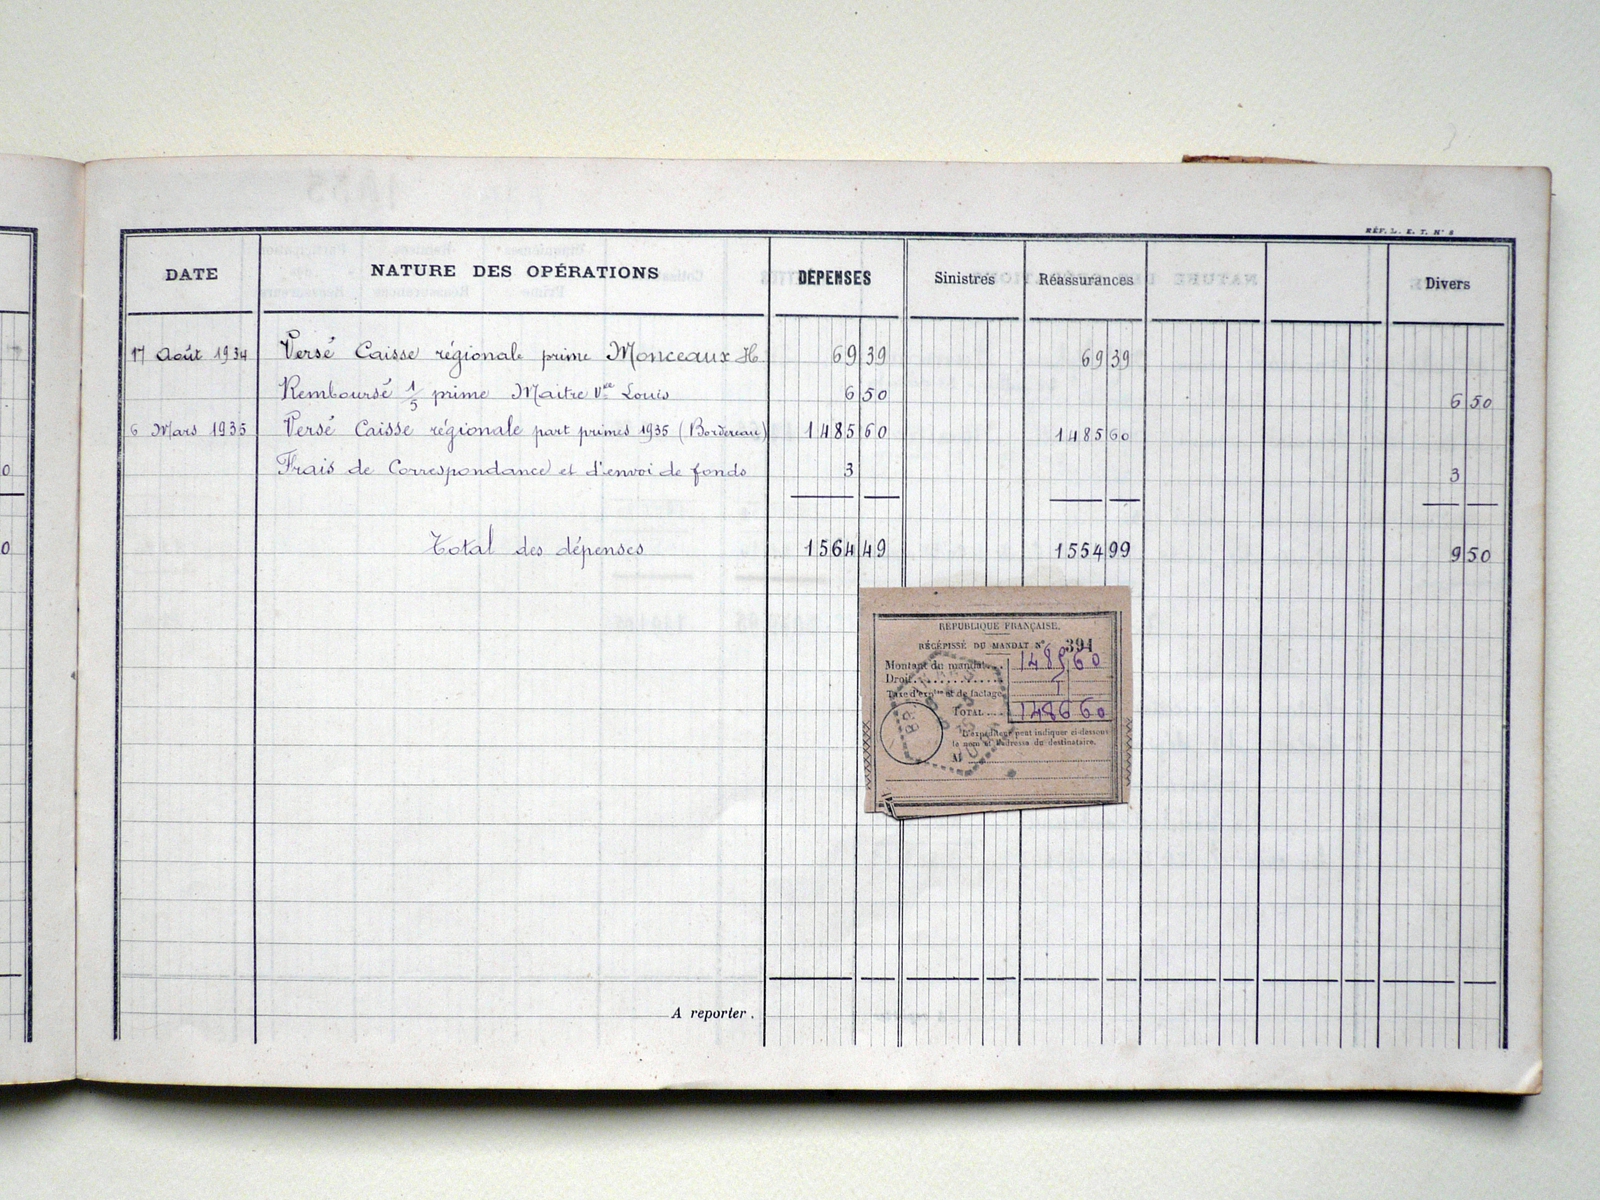 RÉF. L. E. T. N° 8
DATE NATURE DES OPÉRATIONS DÉPENSES Sinistres Réassurances Divers
17 Août 1934 Versé Caisse régionale prime Monceaux H. 69 39 69 39
Remboursé 1/5 prime Maitre Vve Louis 6 50 6 50
6 Mars 1935 Versé Caisse régionale part primes 1935 (Bordereau) 1485 60 1485 60
Frais de Correspondance et d'envoi de fonds 3 3
Total des dépenses 1564 49 1554 99 9 50
RÉPUBLIQUE FRANÇAISE.
RÉCÉPISSÉ DU MANDAT N° 394
Montant du mandat... 1485 60
Droit............. 1
Taxe d'expon et de factage
TOTAL.... 1486 60
L'expéditeur peut indiquer ci-dessous
le nom et l'adresse du destinataire.
M
A reporter.